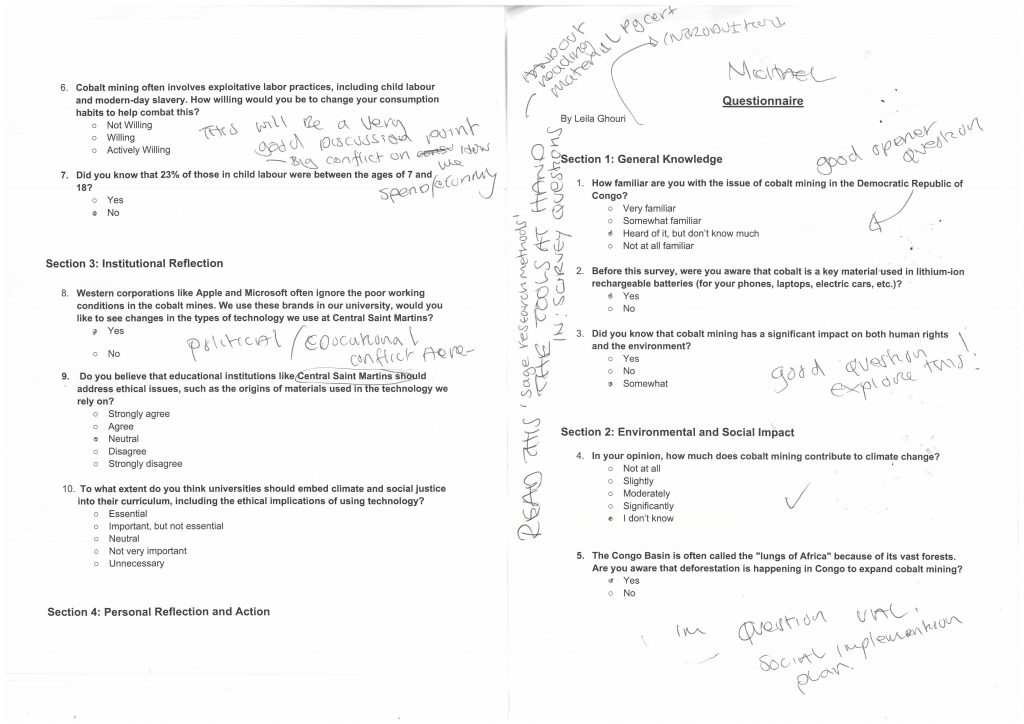 6. Cobalt mining often involves exploitative labor practices, including child labour
and modern-day slavery. How willing would you be to change your consumption
habits to help combat this?
Not Willing
Willing
Actively Willing
THIS will BE a very
good Discussion point
– Big conflict on how
we
spend/economy
7. Did you know that 23% of those in child labour were between the ages of 7 and
18?
Yes
No
Section 3: Institutional Reflection
8. Western corporations like Apple and Microsoft often ignore the poor working
conditions in the cobalt mines. We use these brands in our university, would you
like to see changes in the types of technology we use at Central Saint Martins?
Yes
No
Political / EDUCational
conflict Here
9. Do you believe that educational institutions like Central Saint Martins should
address ethical issues, such as the origins of materials used in the technology we
rely on?
Strongly agree
Agree
Neutral
Disagree
Strongly disagree
10. To what extent do you think universities should embed climate and social justice
into their curriculum, including the ethical implications of using technology?
Essential
Important, but not essential
Neutral
Not very important
Unnecessary
Section 4: Personal Reflection and Action
HANDOUT
reading
material Pgcert
INTRODUCTION
MICHAEL
Questionnaire
By Leila Ghouri
READ THIS 'sage research methods'
THE TOOLS AT HAND
IN: SURVEY QUESTIONS
good opener
question
Section 1: General Knowledge
1. How familiar are you with the issue of cobalt mining in the Democratic Republic of
Congo?
Very familiar
Somewhat familiar
Heard of it, but don't know much
Not at all familiar
2. Before this survey, were you aware that cobalt is a key material used in lithium-ion
rechargeable batteries (for your phones, laptops, electric cars, etc.)?
Yes
No
3. Did you know that cobalt mining has a significant impact on both human rights
and the environment?
Yes
No
Somewhat
good question
explore this!
Section 2: Environmental and Social Impact
4. In your opinion, how much does cobalt mining contribute to climate change?
Not at all
Slightly
Moderately
Significantly
I don't know
5. The Congo Basin is often called the "lungs of Africa" because of its vast forests.
Are you aware that deforestation is happening in Congo to expand cobalt mining?
Yes
No
Im Question UAL.
Social implemention
plan.